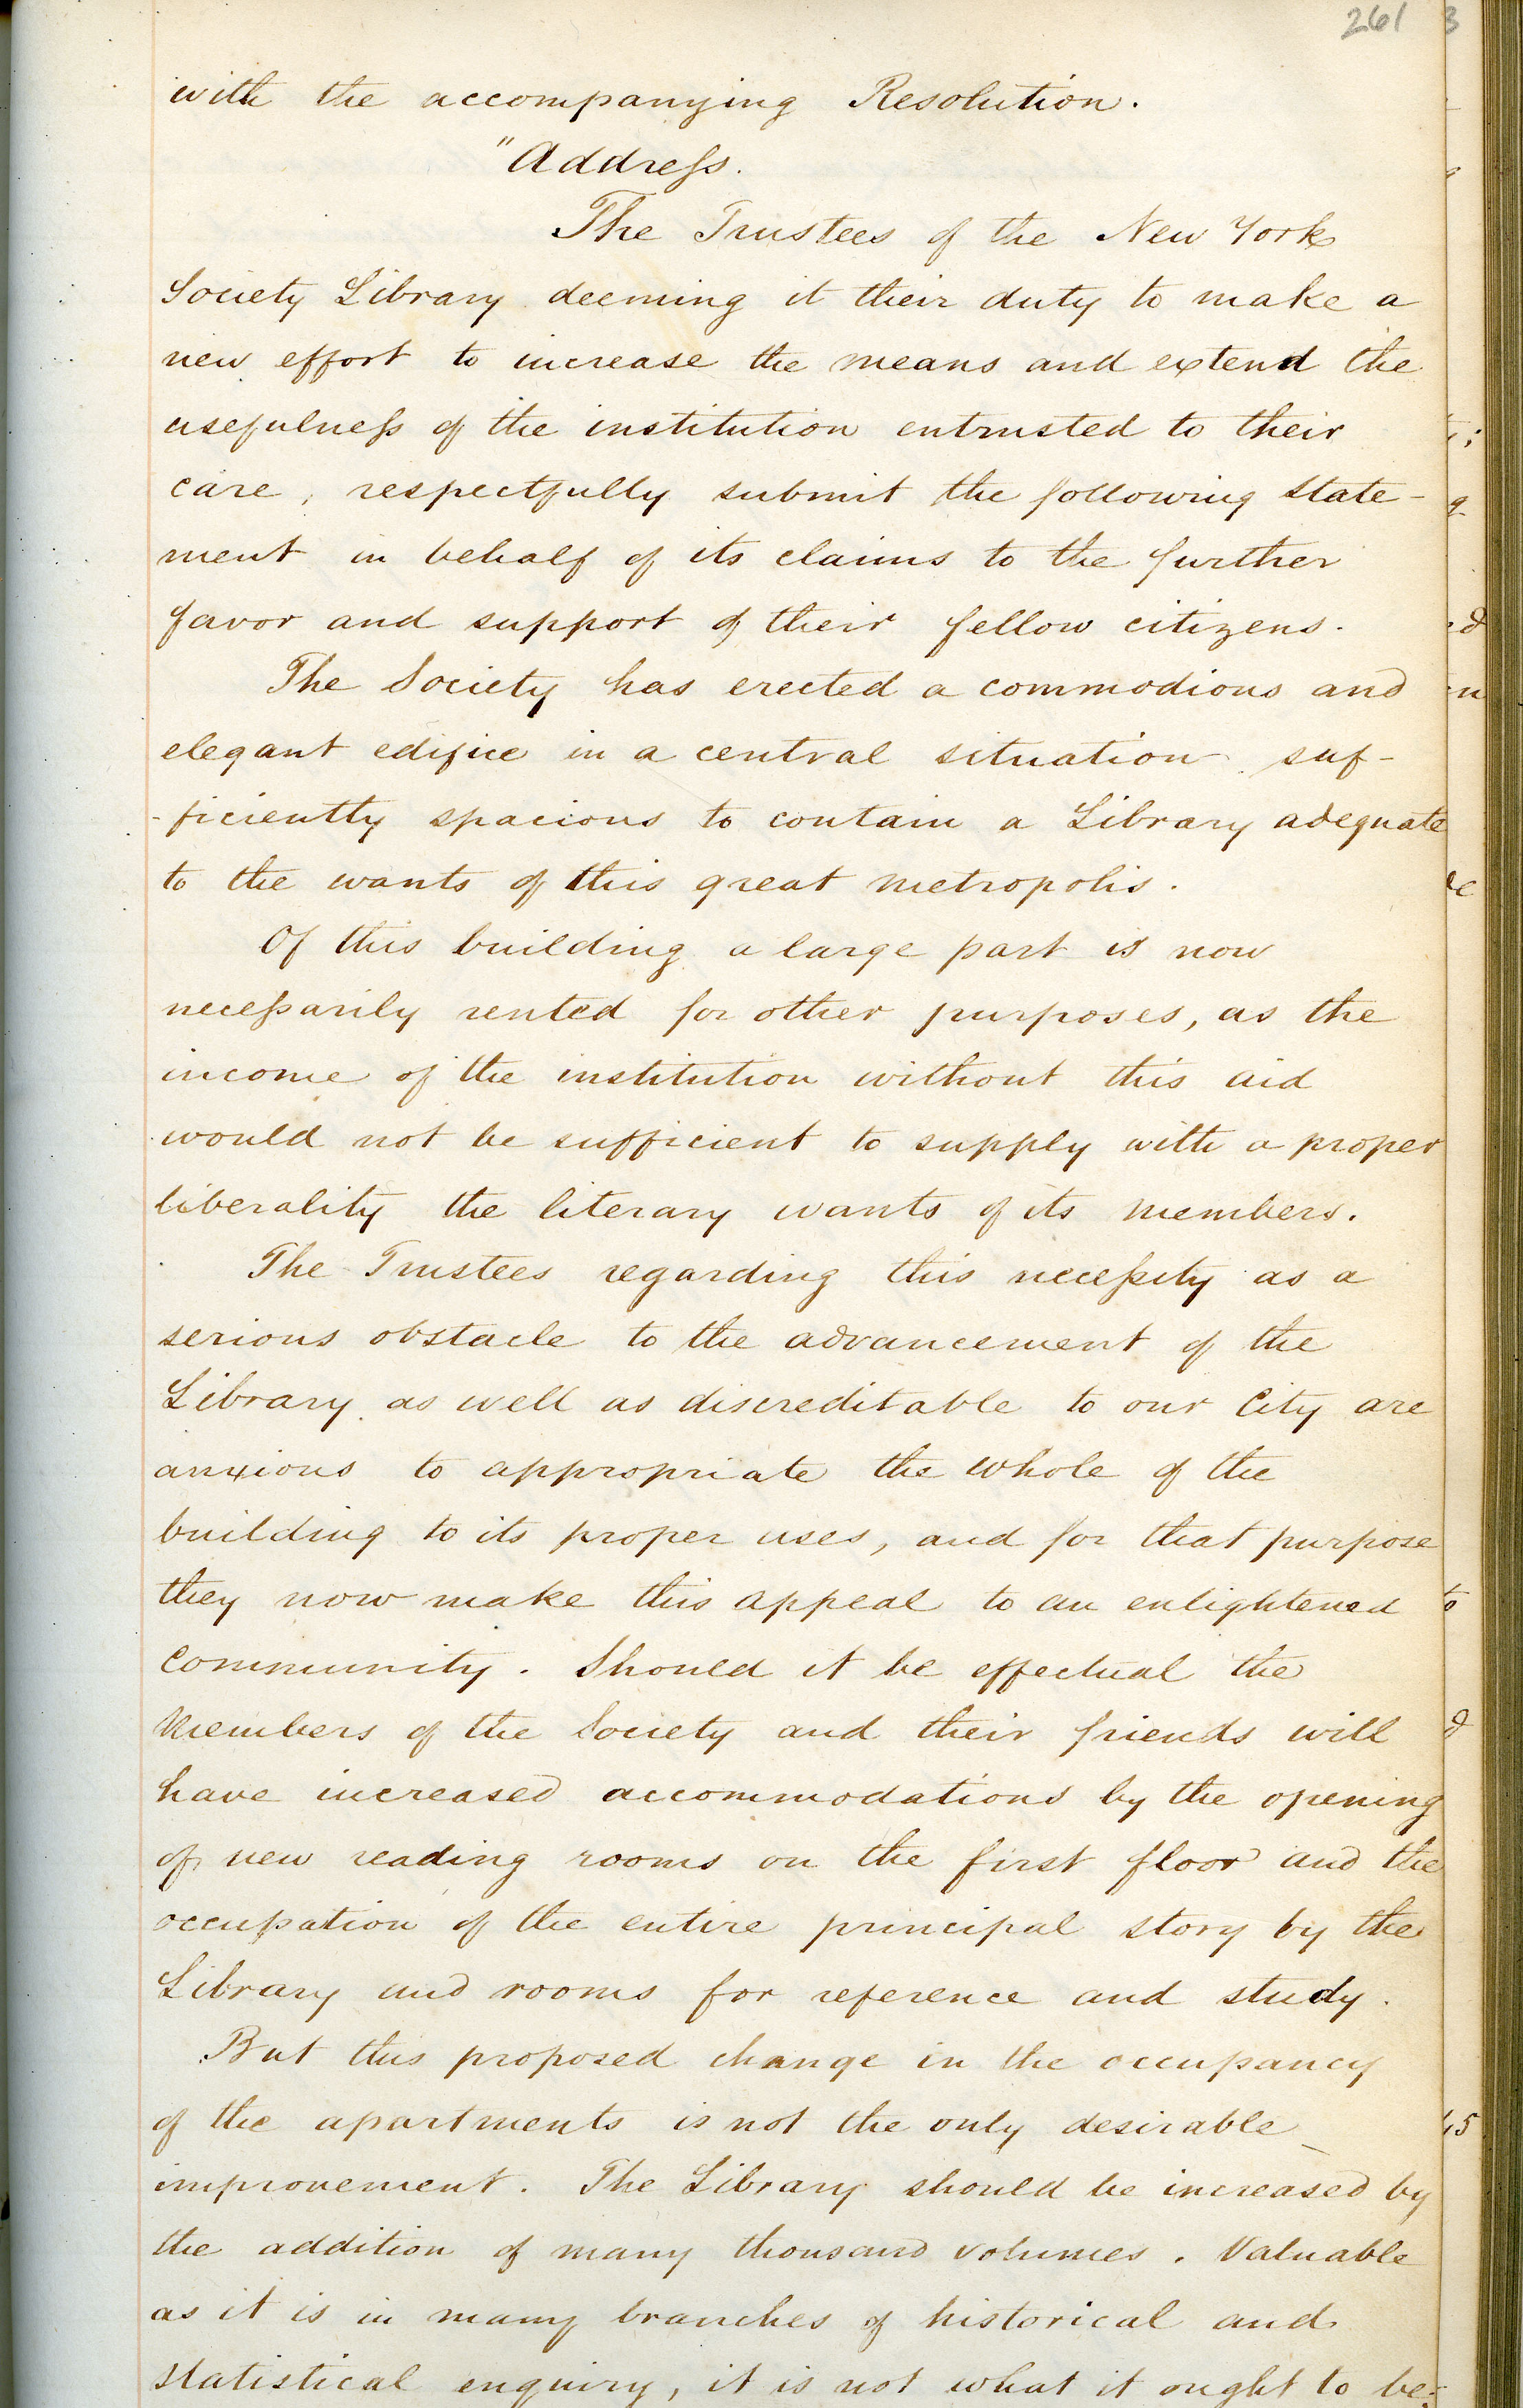 261 3
with the accompanying Resolution.
"Address.
The Trustees of the New York
Society Library deeming it their duty to make a
new effort to increase the means and extend the
usefulness of the institution entrusted to their
care, respectfully submit the following state-
ment in behalf of its claims to the further
favor and support of their fellow citizens.
The Society has erected a commodious and
elegant edifice in a central situation suf-
-ficiently spacious to contain a Library adequate
to the wants of this great metropolis.
Of this building a large part is now
necessarily rented for other purposes, as the
income of the institution without this aid
would not be sufficient to supply with a proper
liberality the literary wants of its members.
The Trustees regarding this necessity as a
serious obstacle to the advancement of the
Library as well as discreditable to our City are
anxious to appropriate the whole of the
building to its proper uses, and for that purpose
they now make this appeal to an enlightened
community. Should it be effectual the
members of the Society and their friends will
have increased accommodations by the opening
of new reading rooms on the first floor and the
occupation of the entire principal story by the
Library and rooms for reference and study.
But this proposed change in the occupancy
of the apartments is not the only desirable
improvement. The Library should be increased by
the addition of many thousand volumes. Valuable
as it is in many branches of historical and
statistical enquiry, it is not what it ought to be: